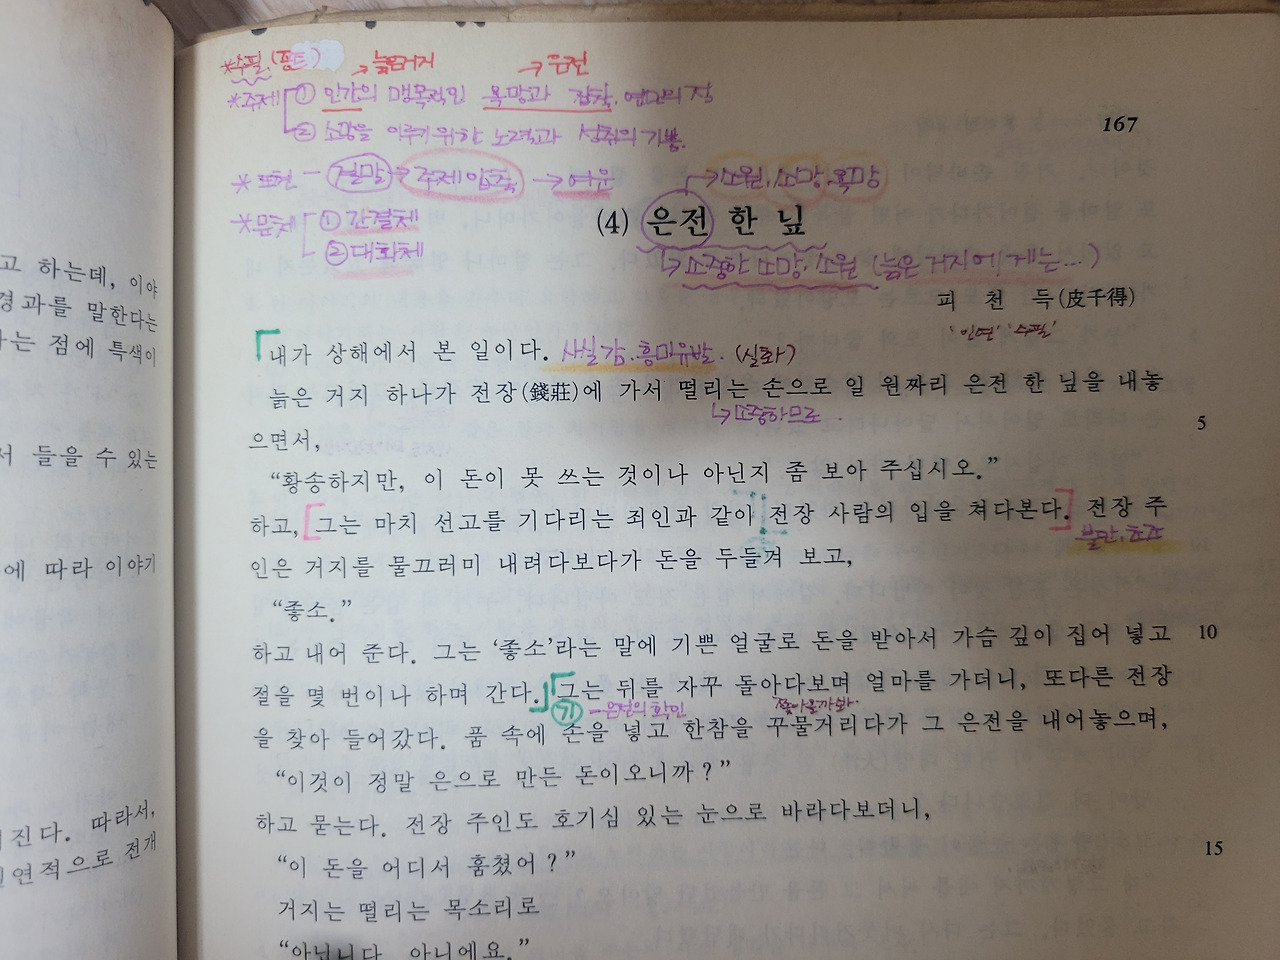 *수필(콩트)
→늙은거지
→은전
*주제 ① 인간의 맹목적인 욕망과 집착, 연민의 정
② 소망을 이루기 위한 노력과 성취의 기쁨.
167
*표현 - 결말→주제 암축 → 여운
→소원, 소망, 욕망
*문체 ① 간결체
② 대화체
(4) 은전 한 닢
↳소중한 소망, 소원 (늙은 거지에게는...)
피 천 득(皮千得)
'인연' '수필'
내가 상해에서 본 일이다. 사실감, 흥미유발. (실화)
늙은 거지 하나가 전장(錢莊)에 가서 떨리는 손으로 일 원짜리 은전 한 닢을 내놓
↳소중하므로
5
으면서,
“황송하지만, 이 돈이 못 쓰는 것이나 아닌지 좀 보아 주십시오.”
하고, 그는 마치 선고를 기다리는 죄인과 같이 전장 사람의 입을 쳐다본다. 전장 주
불안, 초조
인은 거지를 물끄러미 내려다보다가 돈을 두들겨 보고,
“좋소.”
하고 내어 준다. 그는 ‘좋소’라는 말에 기쁜 얼굴로 돈을 받아서 가슴 깊이 집어 넣고
10
절을 몇 번이나 하며 간다. 그는 뒤를 자꾸 돌아다보며 얼마를 가더니, 또다른 전장
기 -은전의 확인
쫓아올까봐.
을 찾아 들어갔다. 품 속에 손을 넣고 한참을 꾸물거리다가 그 은전을 내어놓으며,
“이것이 정말 은으로 만든 돈이오니까?”
하고 묻는다. 전장 주인도 호기심 있는 눈으로 바라다보더니,
“이 돈을 어디서 훔쳤어?”
15
거지는 떨리는 목소리로
“아닙니다. 아니에요.”
고 하는데, 이야
경과를 말한다는
하는 점에 특색이
서 들을 수 있는
에 따라 이야기
진다. 따라서,
연적으로 전개